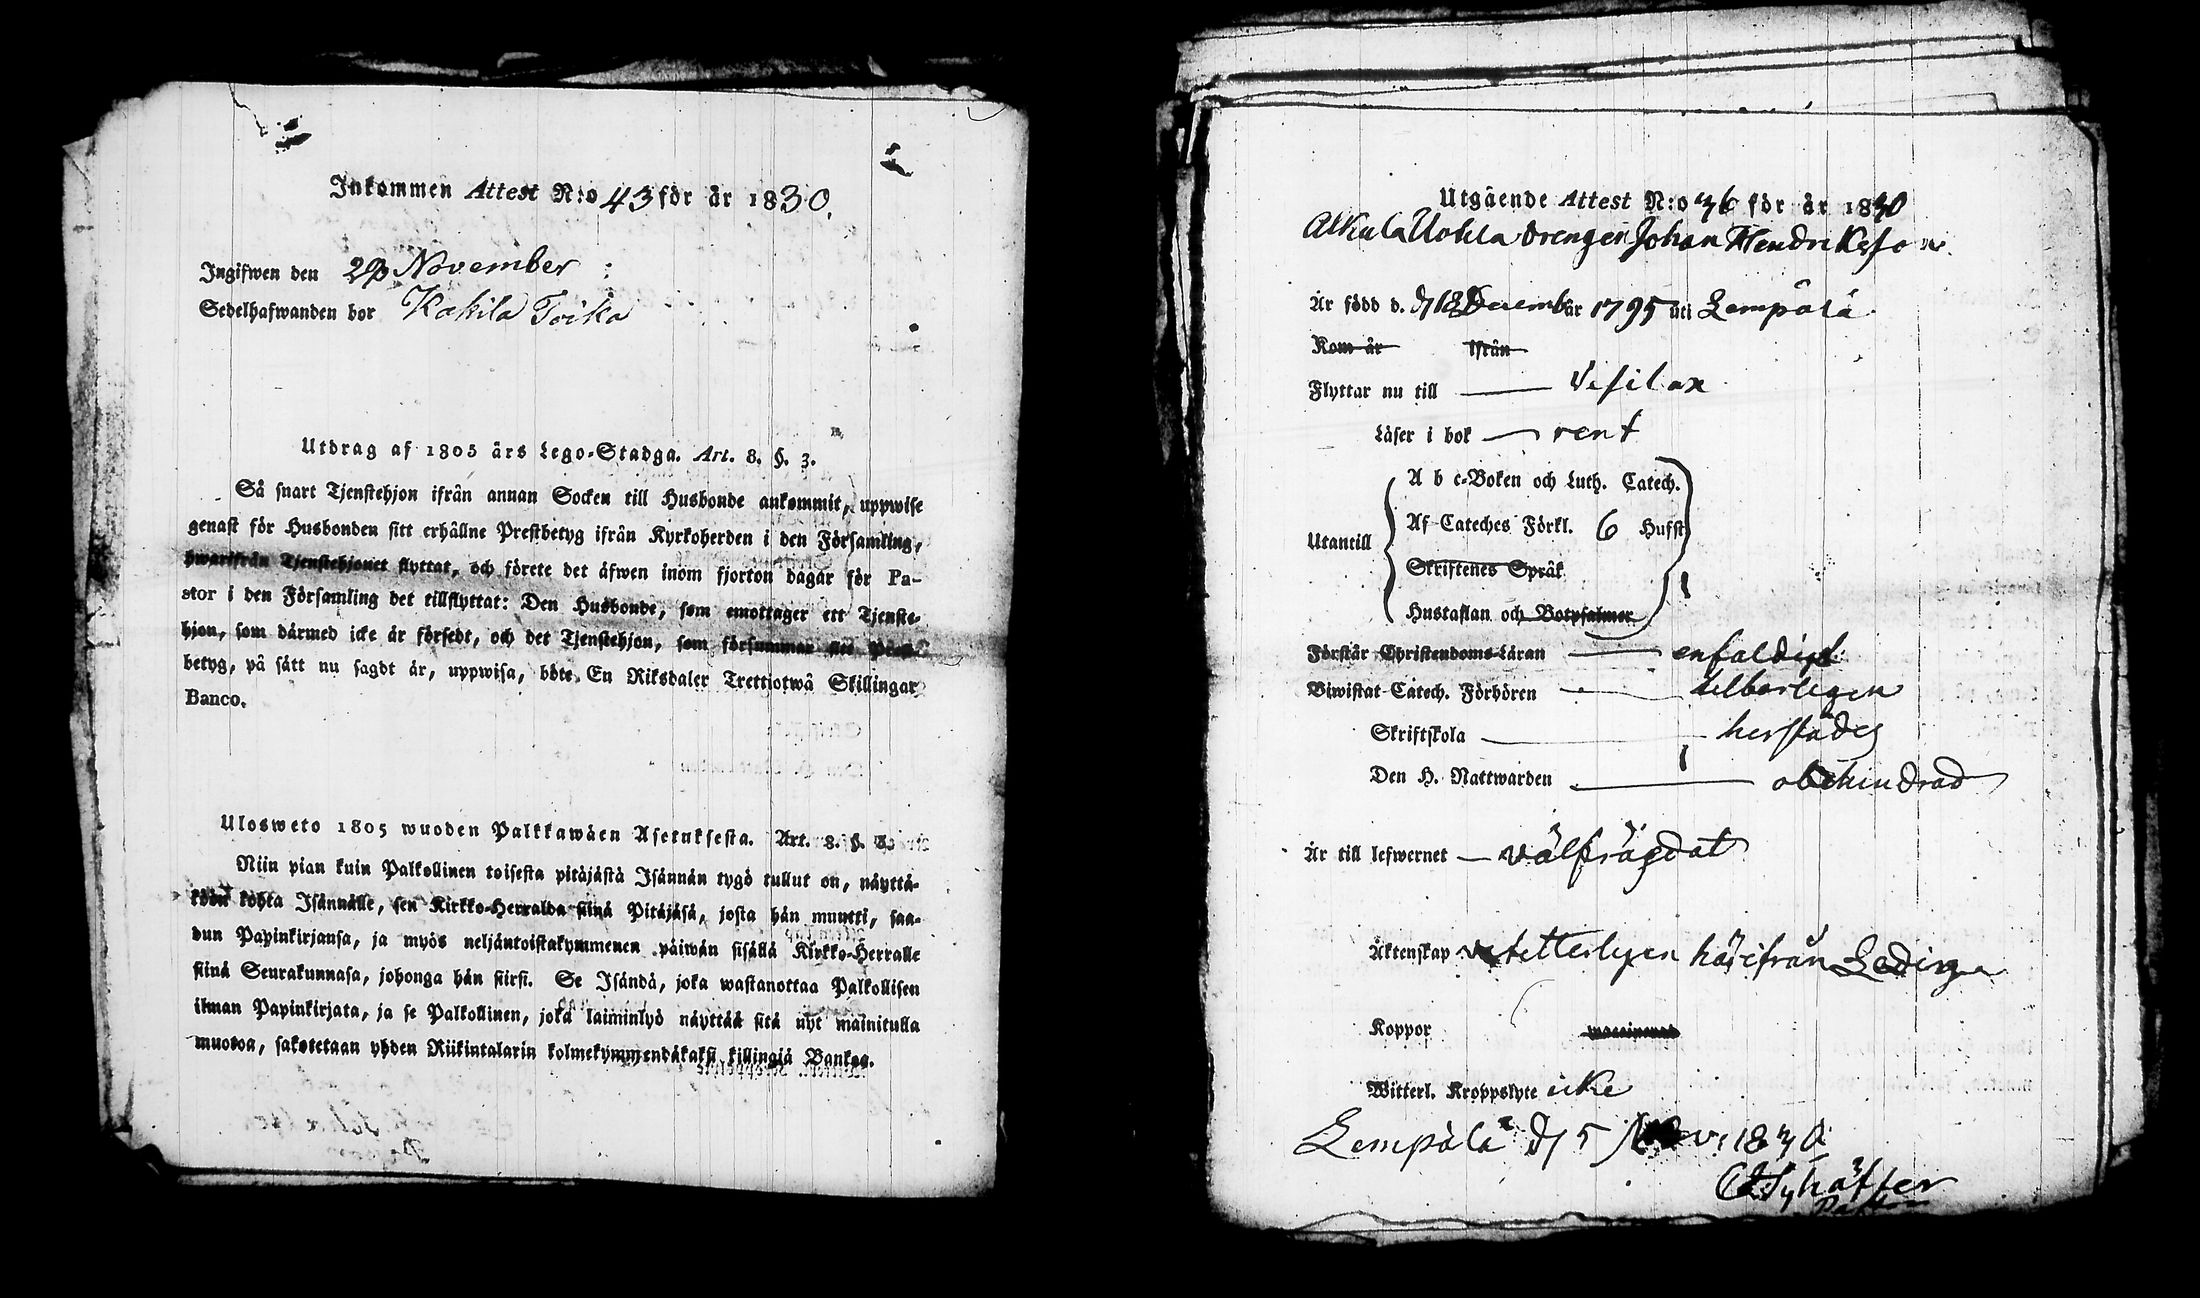 Inkommen Attest N:o 43 för år 1830.
Ingifwen den 29 November
Sedelhafwanden bor Kakila Toika
Utdrag af 1805 års Lego-Stadga. Art. 8. §. 3.
Så snart Tjenstehjon ifrån annan Socken till Husbonde ankommit, uppwise
genast för Husbonden sitt erhållne Prestbetyg ifrån Kyrkoherden i den Församling,
hwarifrån Tjenstehjonet flyttat, och förete det äfwen inom fjorton dagar för Pa-
stor i den Församling det tillflyttat: Den Husbonde, som emottager ett Tjenste-
hjon, som därmed icke är försedt, och det Tjenstehjon, som försummar sitt Prest-
betyg, på sätt nu sagdt är, uppwisa, böte En Riksdaler Trettiotwå Skillingar
Banco.
Ulosweto 1805 wuoden Palkkawäen Asetuksesta. Art. 8. §. 3.
Niin pian kuin Palkollinen toisesta pitäjästä Isännän tygö tullut on, näyttä-
köön kohta Isännälle, sen Kirkko-Herralda siinä Pitäjäsä, josta hän muutti, saa-
dun Papinkirjansa, ja myös neljäntoistakymmenen päiwän sisällä Kirkko-Herralle
siinä Seurakunnasa, johonga hän siirsi. Se Isändä, joka wastanottaa Palkollisen
ilman Papinkirjata, ja se Palkollinen, joka laiminlyö näyttää sitä nyt mainitulla
muotoa, sakotetaan yhden Riikintalarin kolmekymmendäkaksi killingiä Bankoa.
Utgående Attest N:o 36 för år 1830
Alkula Uotila Drengen Johan Hendriksson
Är född d. 18 Decemb år 1795 uti Lempälä
Kom år ifrån
Flyttar nu till Vesilax
Läser i bok rent
Utantill
A b c-Boken och Luth. Catech.
Af Cateches Förkl. 6 Hufst
Skriftenes Språk
Hustaflan och Botpsalmer
Förstår Christendoms-Läran enfaldigt
Biwistat Catech. Förhören tilbörligen
Skriftskola herstädes
Den H. Nattwarden obehindrad
Är till lefwernet välfrägdat
Äktenskap härifrån Ledig
Koppor
Witterl. Kroppslyte icke
Lempälä d 5 Nov: 1830